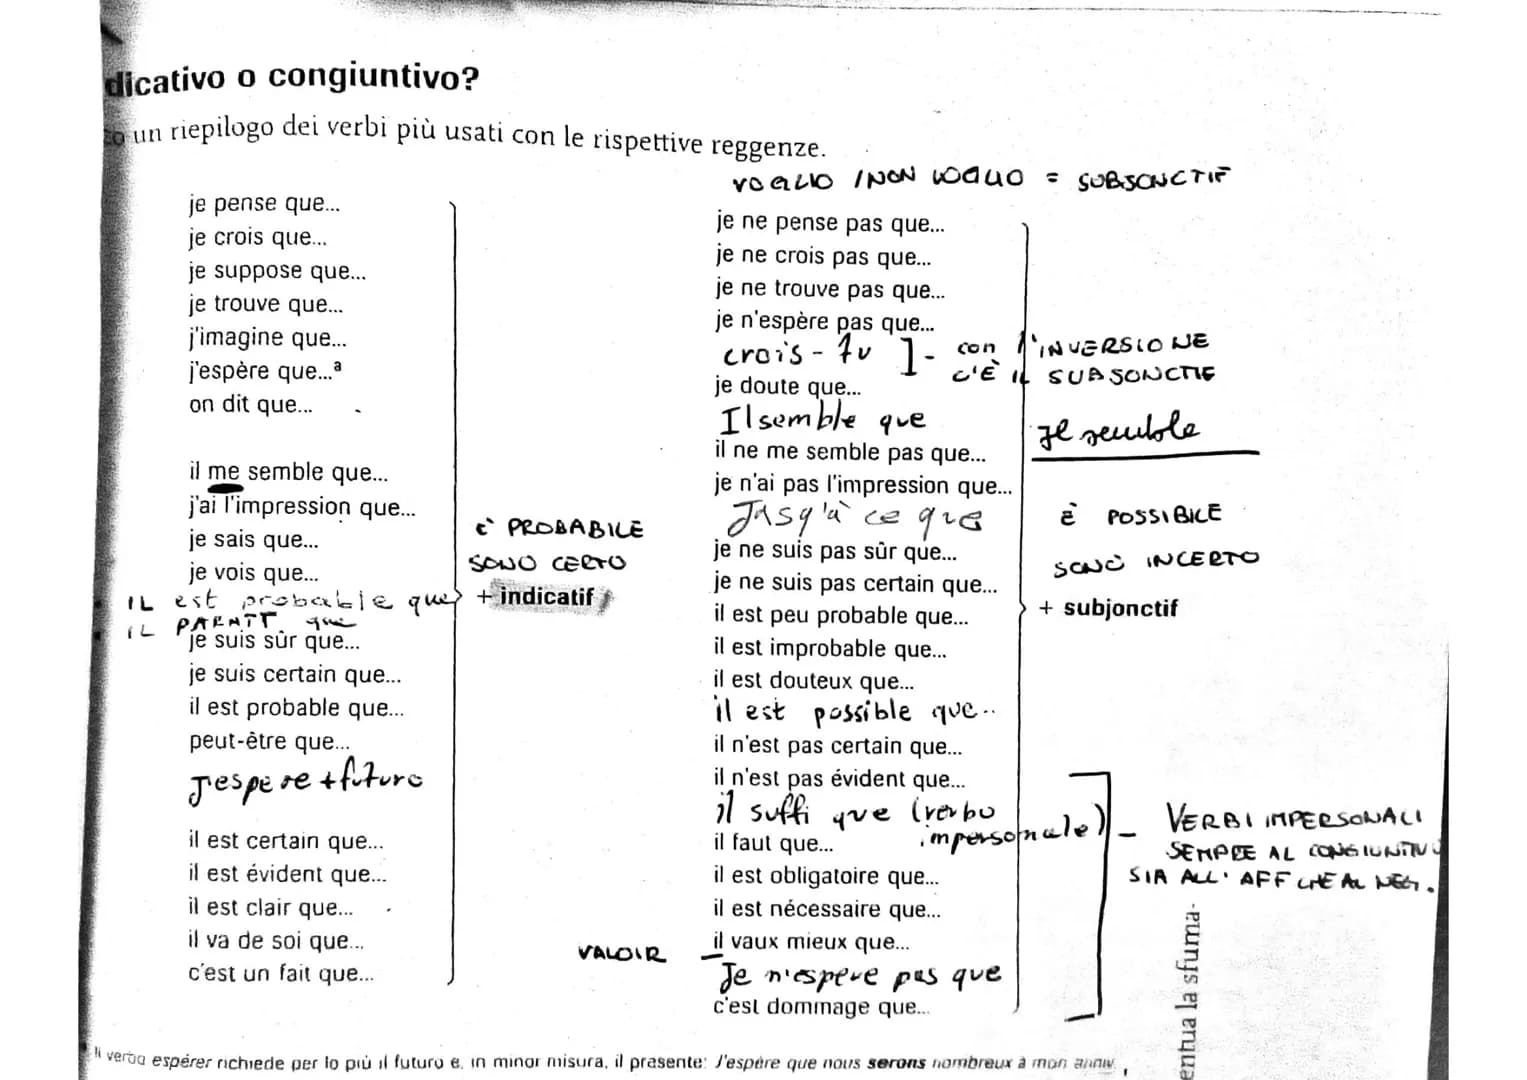 dicativo o congiuntivo?
un riepilogo dei verbi più usati con le rispettive reggenze.
VOGLIO / NON VOGLIO = SUBJONCTIF
je pense que...
je crois que...
je suppose que...
je trouve que...
j'imagine que...
j'espère que...a
on dit que...
il me semble que...
j'ai l'impression que...
je sais que...
je vois que...
IL est probable que
IL PARAIT que
je suis sûr que...
je suis certain que...
il est probable que...
peut-être que...
J'espere + futuro
il est certain que...
il est évident que...
il est clair que...
il va de soi que...
c'est un fait que...
È PROBABILE
SONO CERTO
+ indicatif
je ne pense pas que...
je ne crois pas que...
je ne trouve pas que...
je n'espère pas que...
crois - tu ] - con l'INVERSIONE
C'È IL SUBJONCTIF
je doute que...
Il semble que
il ne me semble pas que...
je n'ai pas l'impression que...
Jusqu'à ce que
je ne suis pas sûr que...
je ne suis pas certain que...
il est peu probable que...
il est improbable que...
il est douteux que...
il est possible que..
il n'est pas certain que...
il n'est pas évident que...
il suffi que (verbo
impersonale)
il faut que...
il est obligatoire que...
il est nécessaire que...
VALOIR
il vaux mieux que...
Je n'espere pas que
c'est dommage que...
Il semble
È POSSIBILE
SONO INCERTO
+ subjonctif
VERBI IMPERSONALI
SEMPRE AL CONGIUNTIVO
SIA ALL'AFF CHE AL NEG.
entua la sfuma-
Il verbo espérer richiede per lo più il futuro e, in minor misura, il presente: J'espère que nous serons nombreux à mon anniv